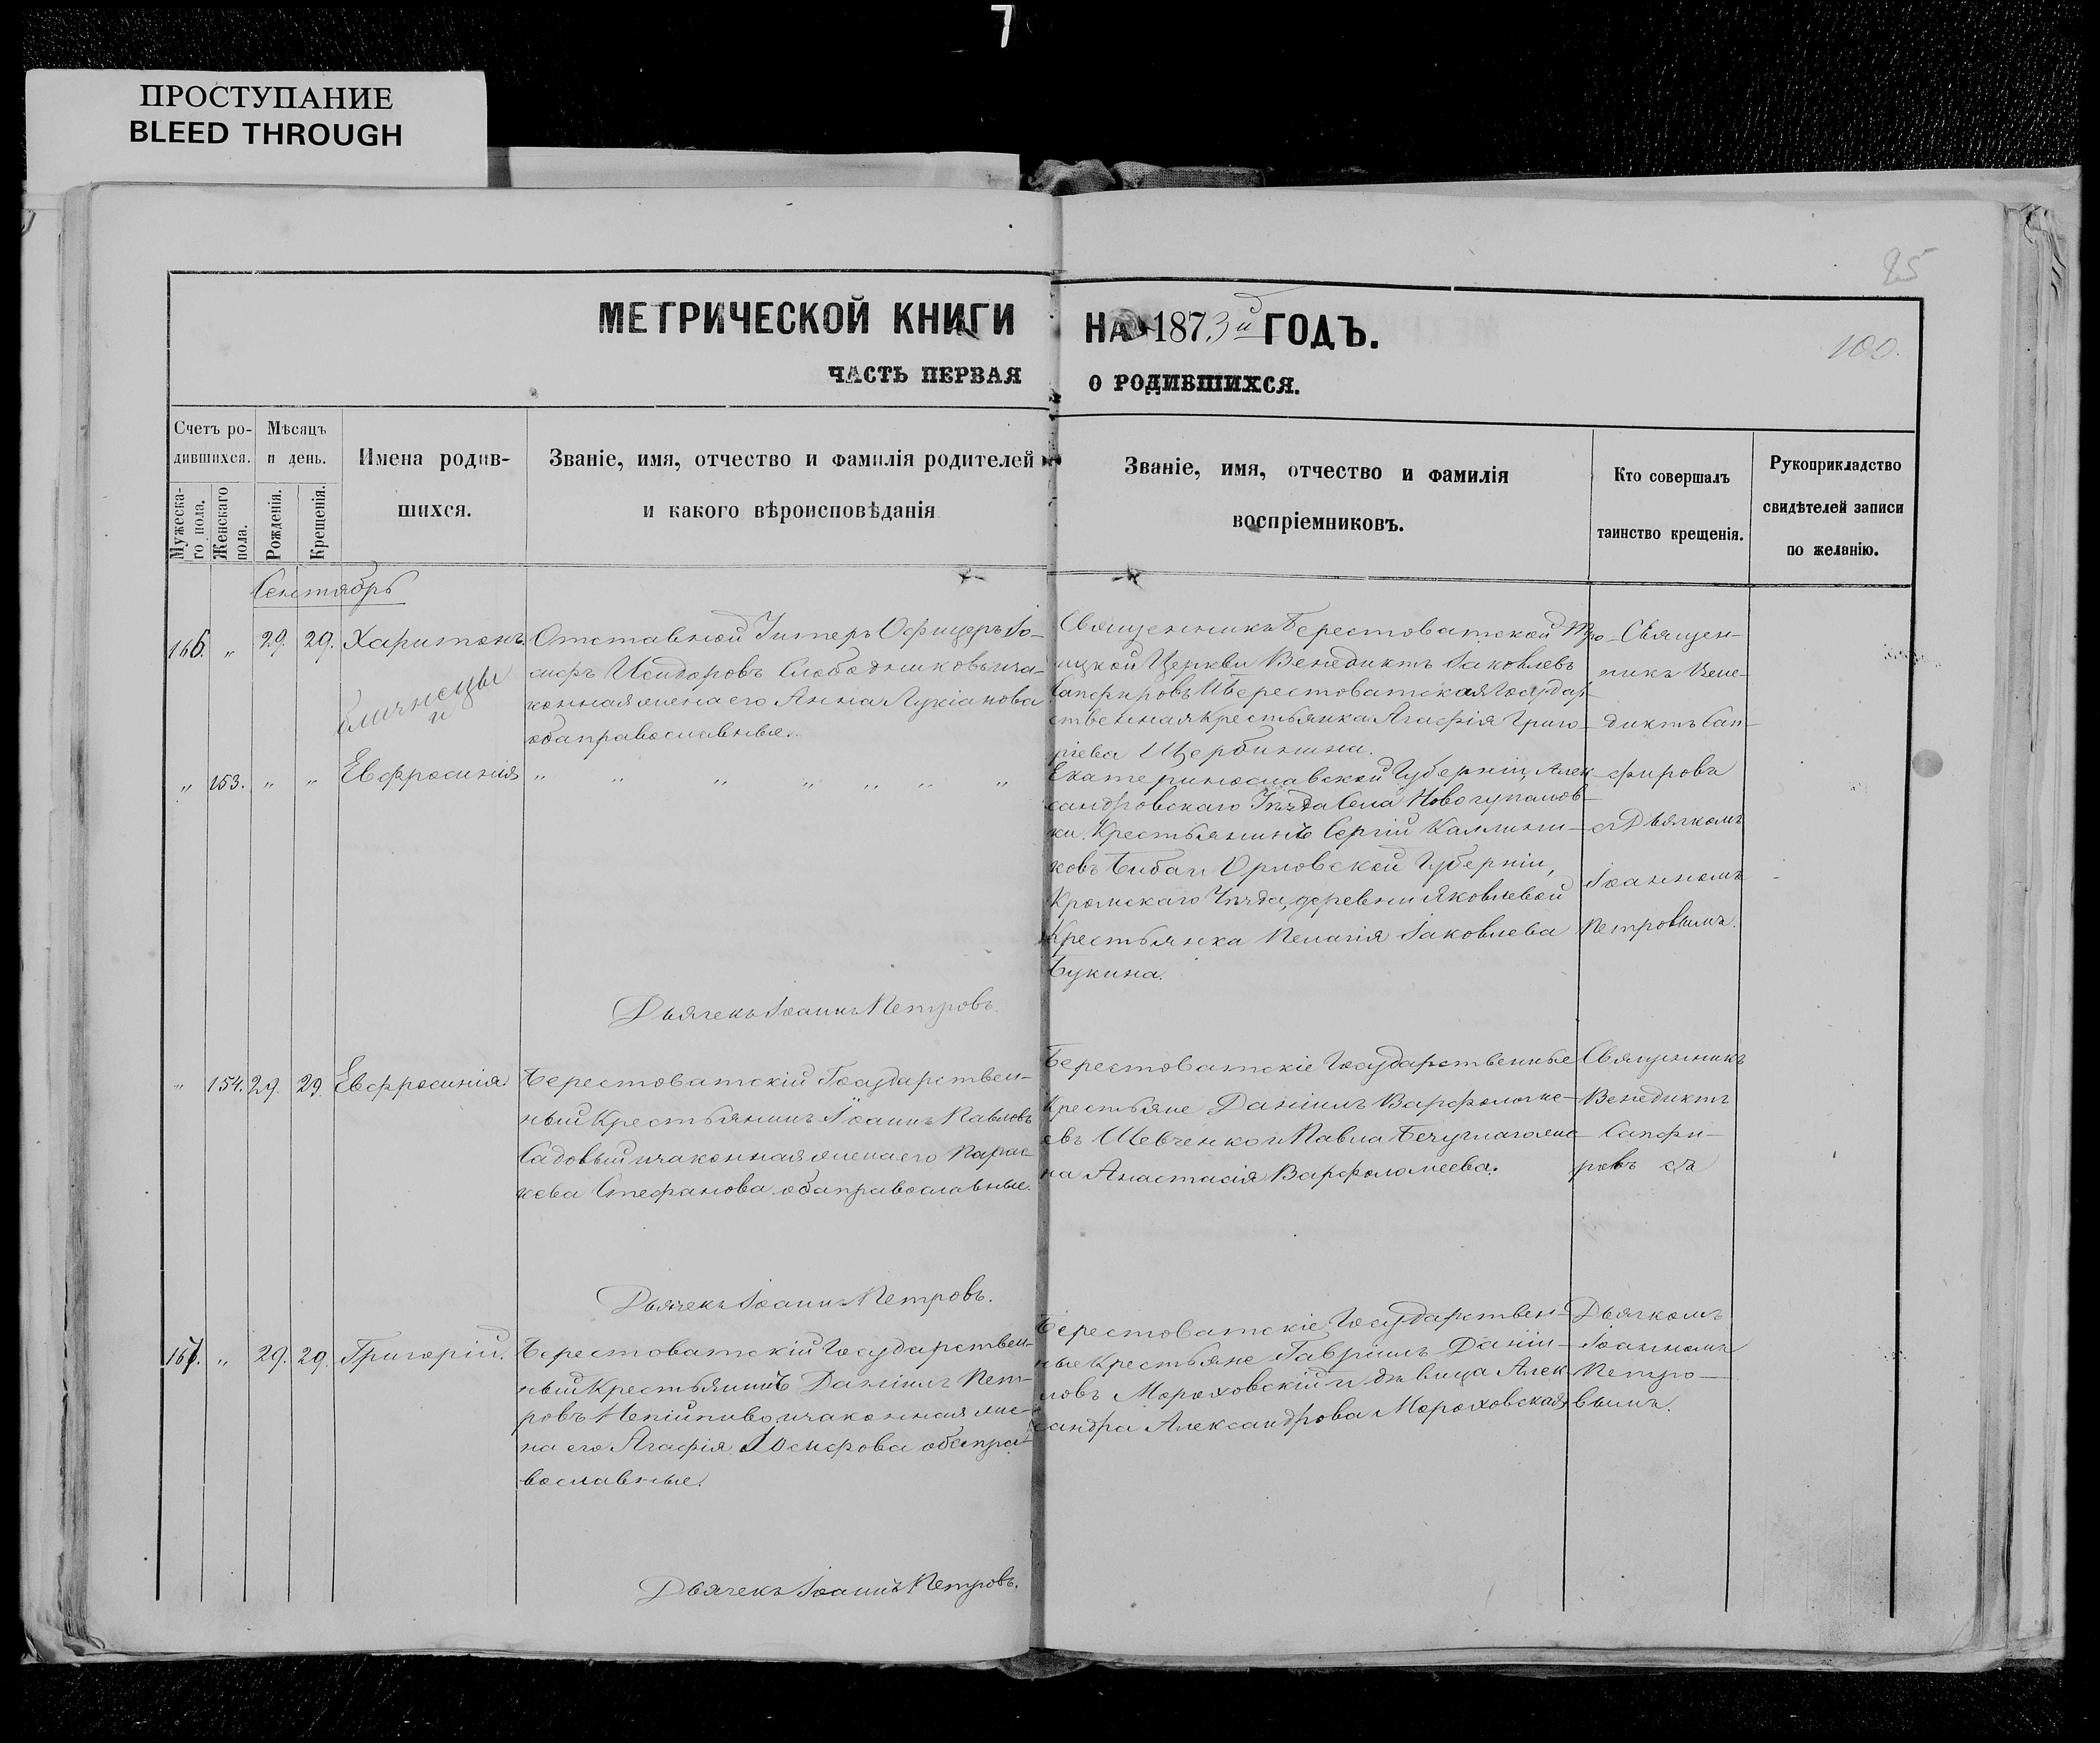 7
ПРОСТУПАНИЕ
BLEED THROUGH
25
МЕТРИЧЕСКОЙ КНИГИ НА 1873й ГОДЪ.
100.
ЧАСТЬ ПЕРВАЯ О РОДИВШИХСЯ.
Счетъ ро-
дившихся.
Мужеска-
го пола.
Женскаго
пола.
Мѣсяцъ
и день.
Рожденія.
Крещенія.
Имена родив-
шихся.
Званіе, имя, отчество и фамилія родителей
и какого вѣроисповѣданія
Званіе, имя, отчество и фамилія
воспріемниковъ.
Кто совершалъ
таинство крещенія.
Рукоприкладство
свидѣтелей записи
по желанію.
Сентябрь
166. „ 29. 29. Харитонъ.
близнецы
и
Отставной Унтеръ Офицеръ Іо-
сифъ Исидоровъ Слободниковъ и за-
конная жена его Анна Лукіанова
оба православные.
Священникъ Берестоватской Тро-
ицкой Церкви Венедиктъ Іаковлевъ
Сапфировъ и Берестоватская Государ-
ственная Крестьянка Агафія Григо-
ріева Щербинина.
„ 153. „ „ Евфросинія
„ „ „ „ „ „ „
Екатеринославской Губерніи, Алек-
сандровскаго Уѣзда Села
ки Крестьянинъ Сергій Каллини-
ковъ Бибаи Орловской Губерніи,
Кромскаго Уѣзда, деревни Яковлевой
Крестьянка Пелагія Іаковлева
Букина.
Священ-
никъ Вене-
диктъ Сап-
фировъ
съ Дьячкомъ
Іоанномъ
Петровымъ.
Дьячекъ Іоаннъ Петровъ.
„ 154. 29. 29. Евфросинія.
Берестоватскій Государствен-
ный Крестьянинъ Іоаннъ Павловъ
Садовый и законная жена его Парас-
кева Стефанова оба православные.
Берестоватскіе Государственные
Крестьяне Даніилъ Варфоломе-
евъ Шевченко и Павла Безуглаго же-
на Анастасія Варфоломеева.
Священникъ
Венедиктъ
Сапфи-
ровъ съ
Дьячекъ Іоаннъ Петровъ.
167. „ 29. 29. Григорій.
Берестоватскій Государствен-
ный Крестьянинъ Даніилъ Пет-
ровъ Непійпиво и законная же-
на его Агафія Іосифова оба пра-
вославные.
Берестоватскіе Государствен-
ные Крестьяне Гавріилъ Даніи-
ловъ Мороховскій и дѣвица Алек-
сандра Александрова Мороховская
Дьячкомъ
Іоанномъ
Петро-
вымъ.
Дьячекъ Іоаннъ Петровъ.